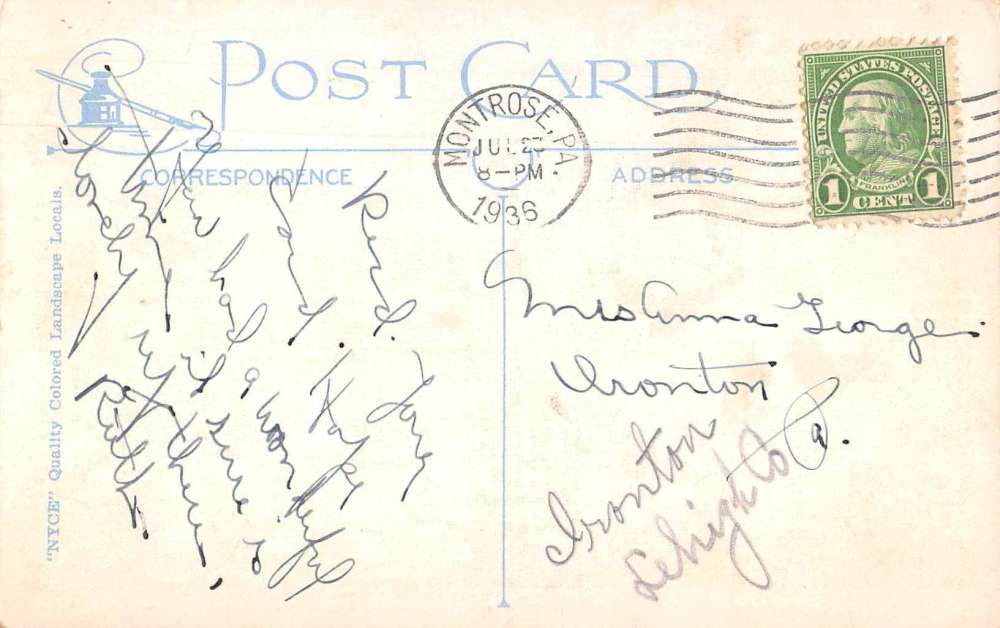 POST CARD
CORRESPONDENCE
ADDRESS
MONTROSE, PA.
JUL
8-PM
1936
UNITED STATES POSTAGE
FRANKLIN
1 CENT 1
Recd. your
Card. Hope
you had a wonderful
time it sure is
lovely up there.
Ruth
Mrs Anna George.
Ironton
Pa.
Ironton
Lehigh Co
"NYCE" Quality Colored Landscape Locals.